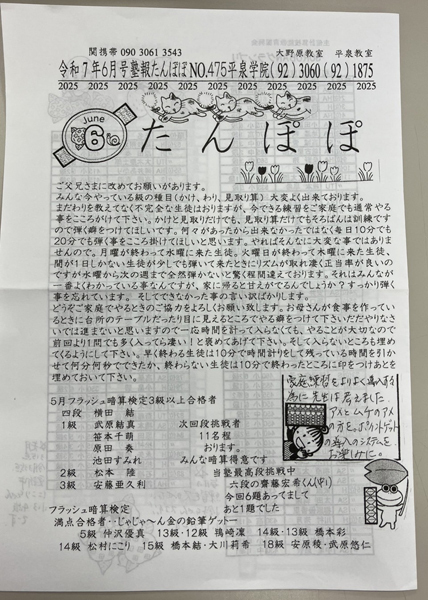 関携帯 090 3061 3543
大野原教室 平泉教室
令和7年6月号塾報たんぽぽNO.475平泉学院(92)3060(92)1875
2025 2025 2025 2025 2025 2025 2025 2025 2025 2025 2025
June
6
たんぽぽ
ご父兄さまに改めてお願いがあります。
みんな今やっている級の種目(かけ、わり、見取り算)大変よく出来ております。
まだわりを教えてなくて不完全な生徒はおりますが、今できる練習をご家庭でも通常やる
事をこころがけて下さい。かけと見取りだけでも、見取り算だけでもそろばんは訓練です
ので弾く癖をつけてほしいです。何々があったから出来なかったではなく毎日10分でも
20分でも弾く事をこころ掛けてほしいと思います。やればそんなに大変な事ではありま
せんので。月曜が終わって水曜に来た生徒。火曜日が終わって木曜に来た生徒、
間が1日しかない生徒が少しでも弾いて来たときにリズムが取れ凄く正、当率が良いの
ですが水曜から次の週まで全然弾かないと驚く程間違えております。それはみんなが
一番よくわかっている事なんですが、家に帰ると甘えがでるんでしょうか?すっかり弾く
事を忘れています。そしてできなかった事の言い訳ばかりします。
どうぞご家庭でやるときのご協力をよろしくお願い致します。お母さんが食事を作ってい
るときに台所のテーブルだったり目に見えるところでやる癖をつけて下さいただやりなさ
いでは進まないと思いますので一応時間を計って入らなくても、やることが大切なので
前回より1問でも多く入ってら凄い!と褒めてあげて下さい。そして入らないところも埋め
てくるようにして下さい。早く終わる生徒は10分で時間計りをして残っている時間を引か
せて何分何秒でできたか、終わらない生徒は10分で終わったところに印をつけあとを
埋めておいて下さい。
5月フラッシュ暗算検定3級以上合格者
四段 横田 結
1級 武原結真 次回段挑戦者
笹本千萌 11名程
原田 奏 おります。
池田すみれ みんな暗算得意です
2級 松本 陸 当塾最高段挑戦中
3級 安藤亜久利 六段の齊藤宏希くん(中1)
今回6題あってまして
あと1題でした
家庭練習をよりよく導入する
為に先生は考えました。
アメとムチのアメ
の方を。ポイントゲット
の導入のシステムを
お楽しみに
フラッシュ暗算検定
満点合格者・・じゃじゃ〜ん金の鉛筆ゲットー
5級 仲沢優真 13級・12級 鴇﨑凜 14級・13級 橋本彩
14級 松村にこり 15級 橋本結・大川莉希 18級 安原稜・武原悠仁